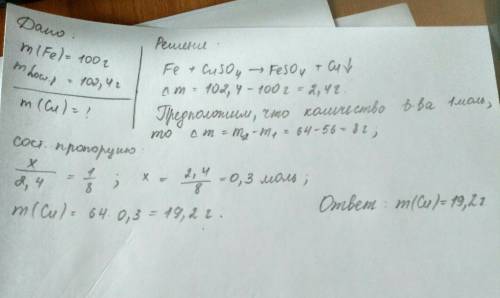 Дано:
m(Fe) = 100 г
m пост = 102,4 г
m(Cu) = ?
Решение:
Fe + CuSO4 → FeSO4 + Cu↓
Δm = 102,4 - 100 г = 2,4 г.
Предположим, что количество в-ва 1 моль,
то Δm = m2 - m1 = 64 - 56 = 8 г,
Сост. пропорцию:
x/2,4 = 1/8 ; x = 2,4/8 = 0,3 моль;
m(Cu) = 64 · 0,3 = 19,2 г.
Ответ: m(Cu) = 19,2 г